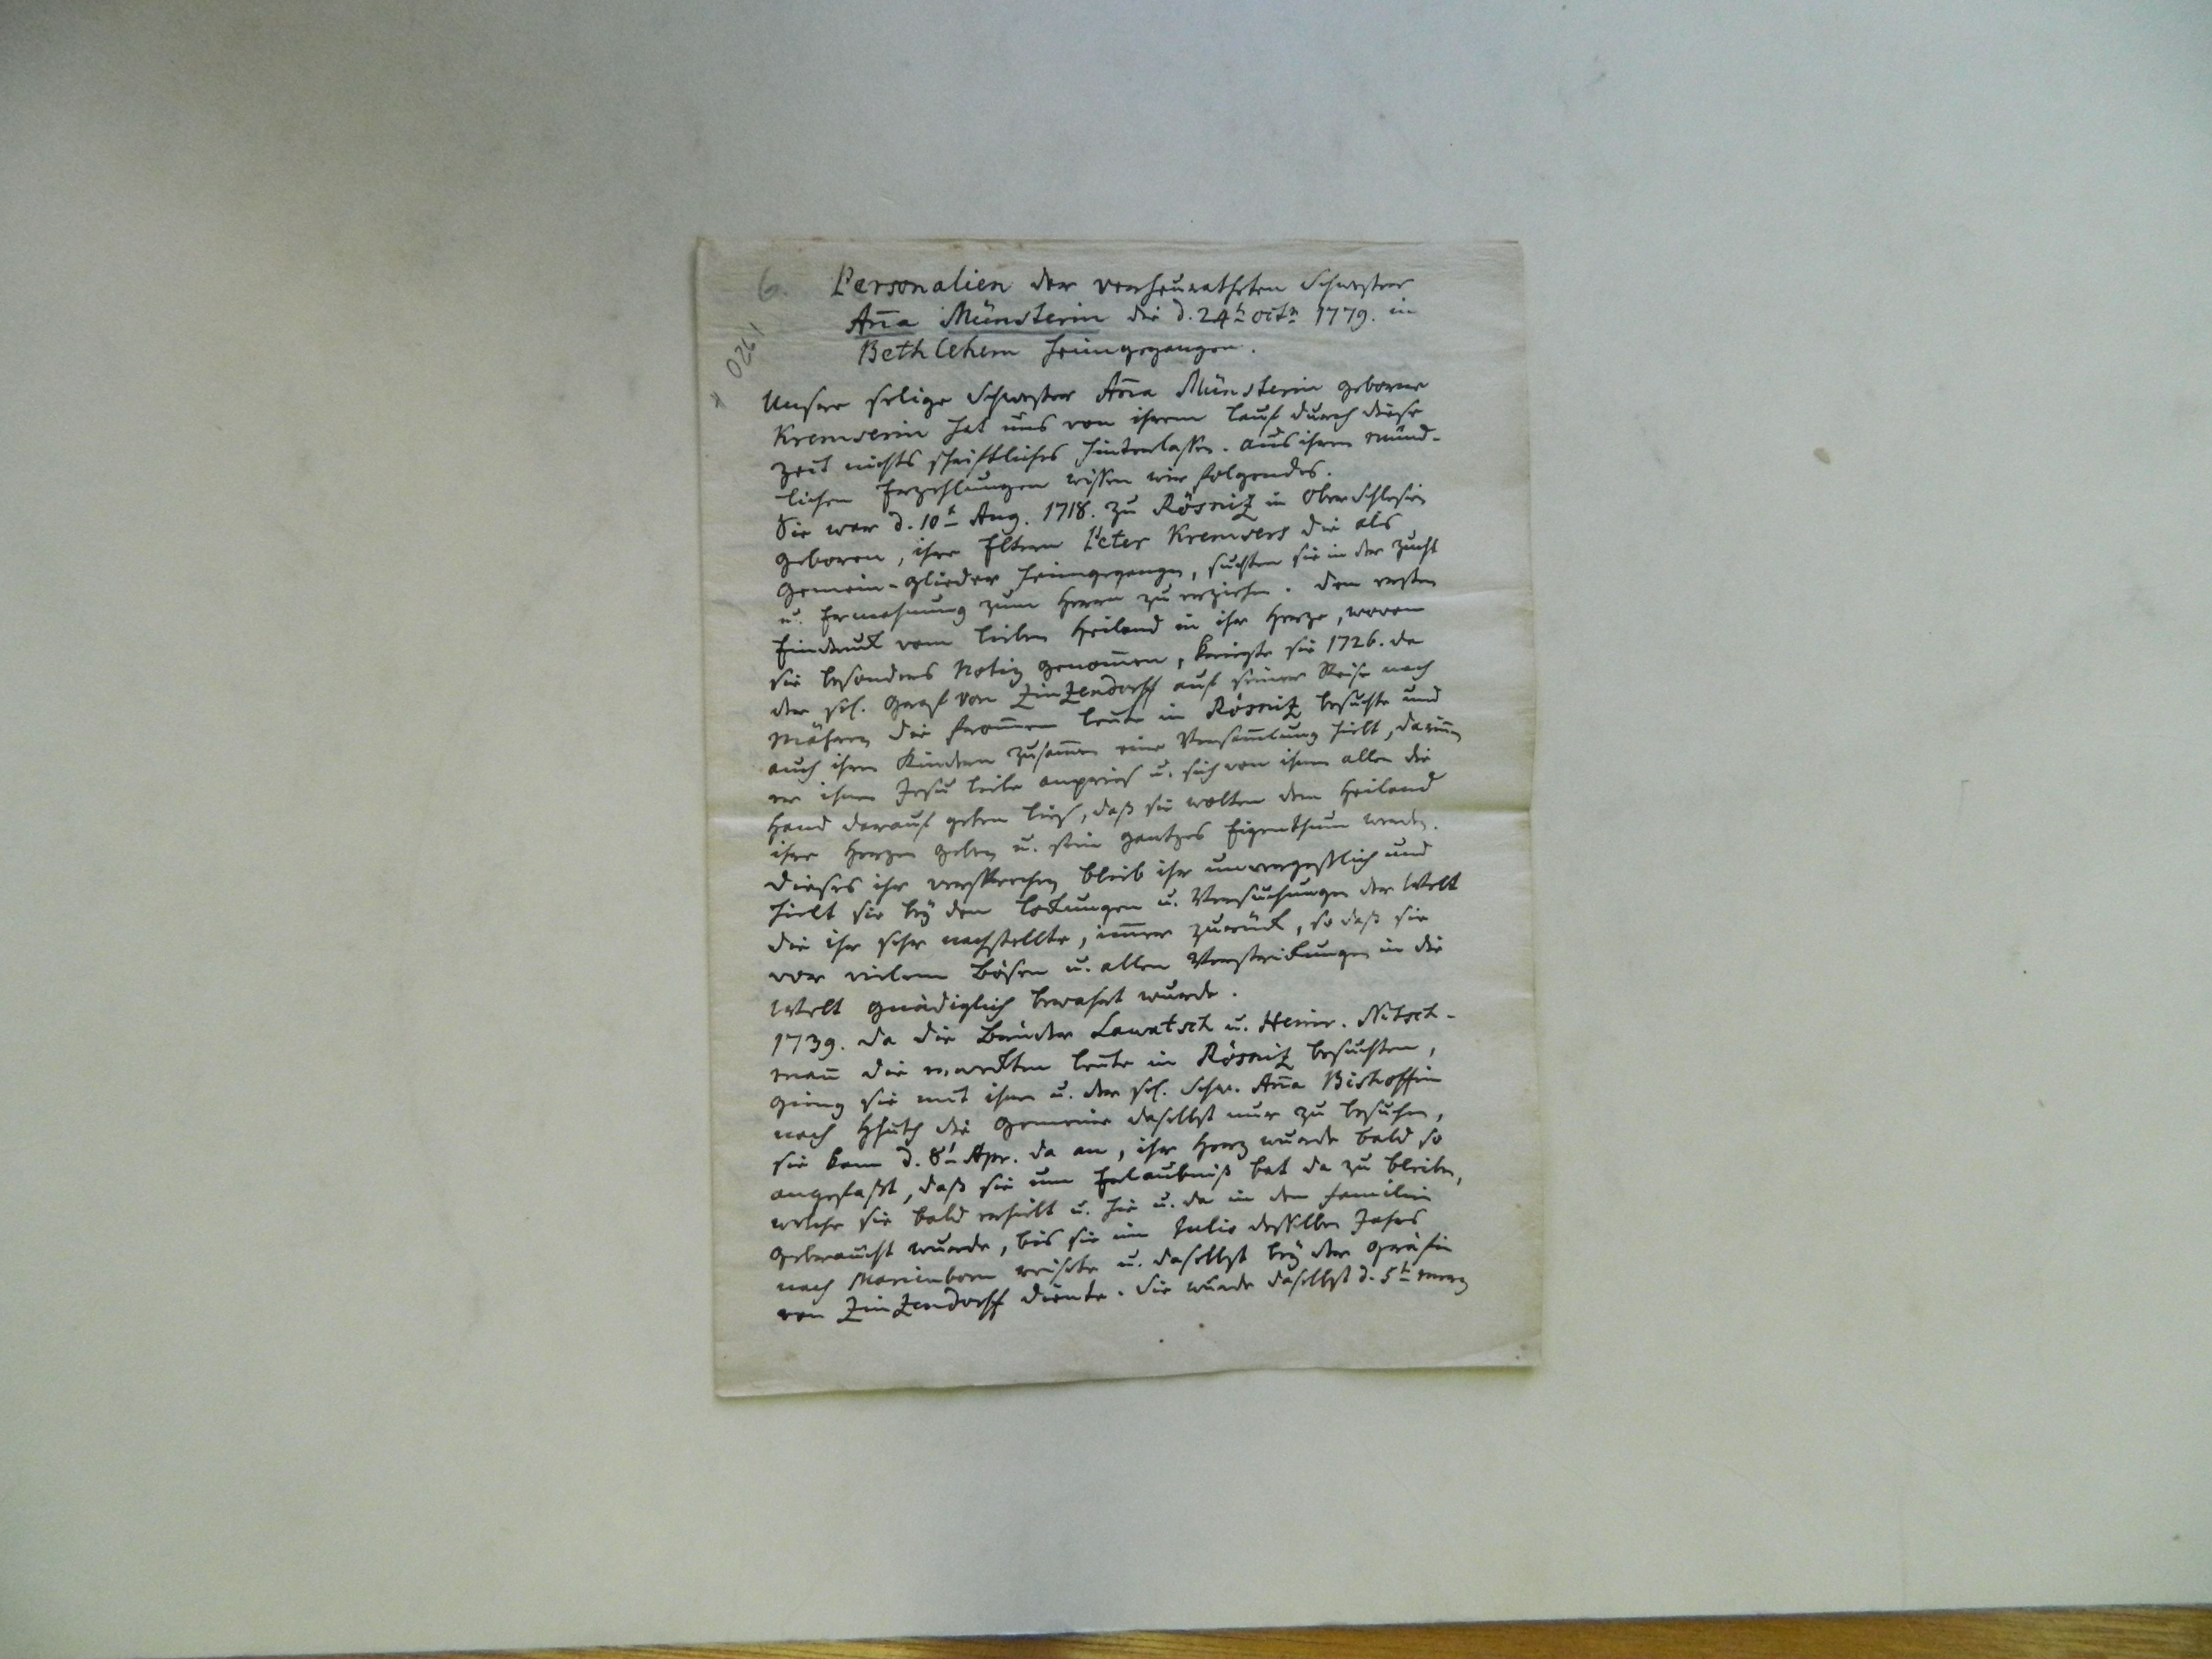 6. Personalien der verheuratheten Schwester
Aña Münsterin die d. 24t octr 1779. in
Bethlehem heimgegangen.
1920
Unsere selige Schwester Aña Münsterin geborne
Kremserin hat uns von ihrem Lauf durch diese
Zeit nichts schriftliches hinterlassen. aus ihren münd-
lichen Erzehlungen wissen wir folgendes.
Sie war d. 10t Aug. 1718. zu Rösnitz in Ober Schlesien
geboren, ihre Eltern Peter Kremsers die als
Gemein-Glieder heimgegangen, suchten sie in der Zucht
u. Ermahnung zum Herrn zu erziehen. Den ersten
Eindruck vom lieben Heiland in ihr Herze, wovon
sie besonders Notiz genom̄en, kriegte sie 1726. da
der sel. Graf von Zinzendorff auf seiner Reise nach
Mähren die from̄en Leute in Rösnitz besuchte und
auch ihren Kindern zusam̄en eine Versam̄lung hielt, dariñen
er ihnen Jesu Liebe anpries u. sich von ihnen allen die
Hand darauf geben lies, daß sie wolten dem Heiland
ihre Herzen geben u. sein gantzes Eigenthum werden.
Dieses ihr versprechen blieb ihr unvergesslich und
hielt sie bey den Lockungen u. Versuchungen der Welt
die ihr sehr nachstellte, im̄er zurück, so daß sie
vor vielem Bösen u. allen Verstrickungen in die
Welt gnädiglich bewahrt wurde.
1739. da die Brüder Lawatsch u. Heinr. Nitsch-
mañ die erweckten Leute in Rösnitz besuchten,
ging sie mit ihnen u. der sel. Schw. Aña Bishoffin
nach Hhuth die Gemeine daselbst nur zu besuchen,
sie kam d. 8t Apr. da an, ihr Herz wurde bald so
angefaßt, daß sie um Erlaubniß bat da zu bleiben,
welche sie bald erhielt u. hie u. da in den Familien
gebraucht wurde, bis sie im Julio desselben Jahrs
nach Marienborn reisete u. daselbst bey der Gräfin
von Zinzendorff diente. Sie wurde daselbst d. 5t merz